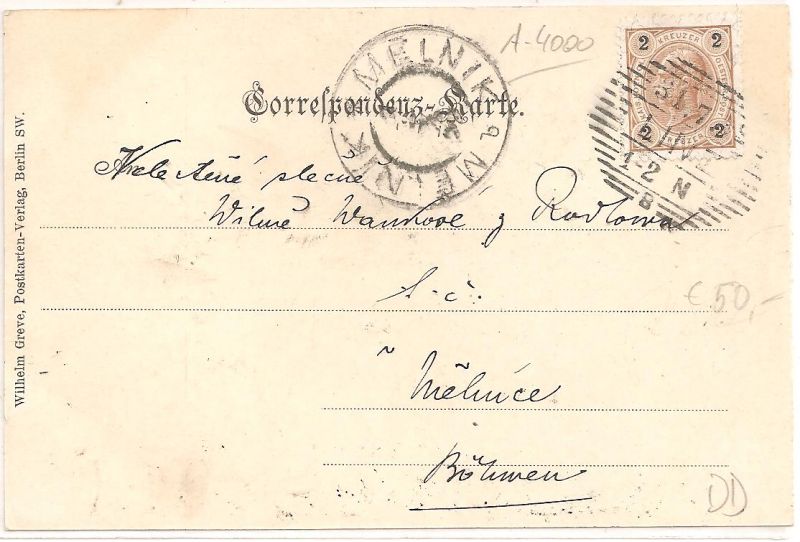 A-4000
MELNIK MELNIK
2 KREUZER 2
2 KREUZER 2
31 7
12 N
8
Correspondenz-Karte.
slečně
Vilmě z
t. č.
v
Mělníce
Böhmen
€ 50,-
DD
Wilhelm Greve, Postkarten-Verlag, Berlin SW.